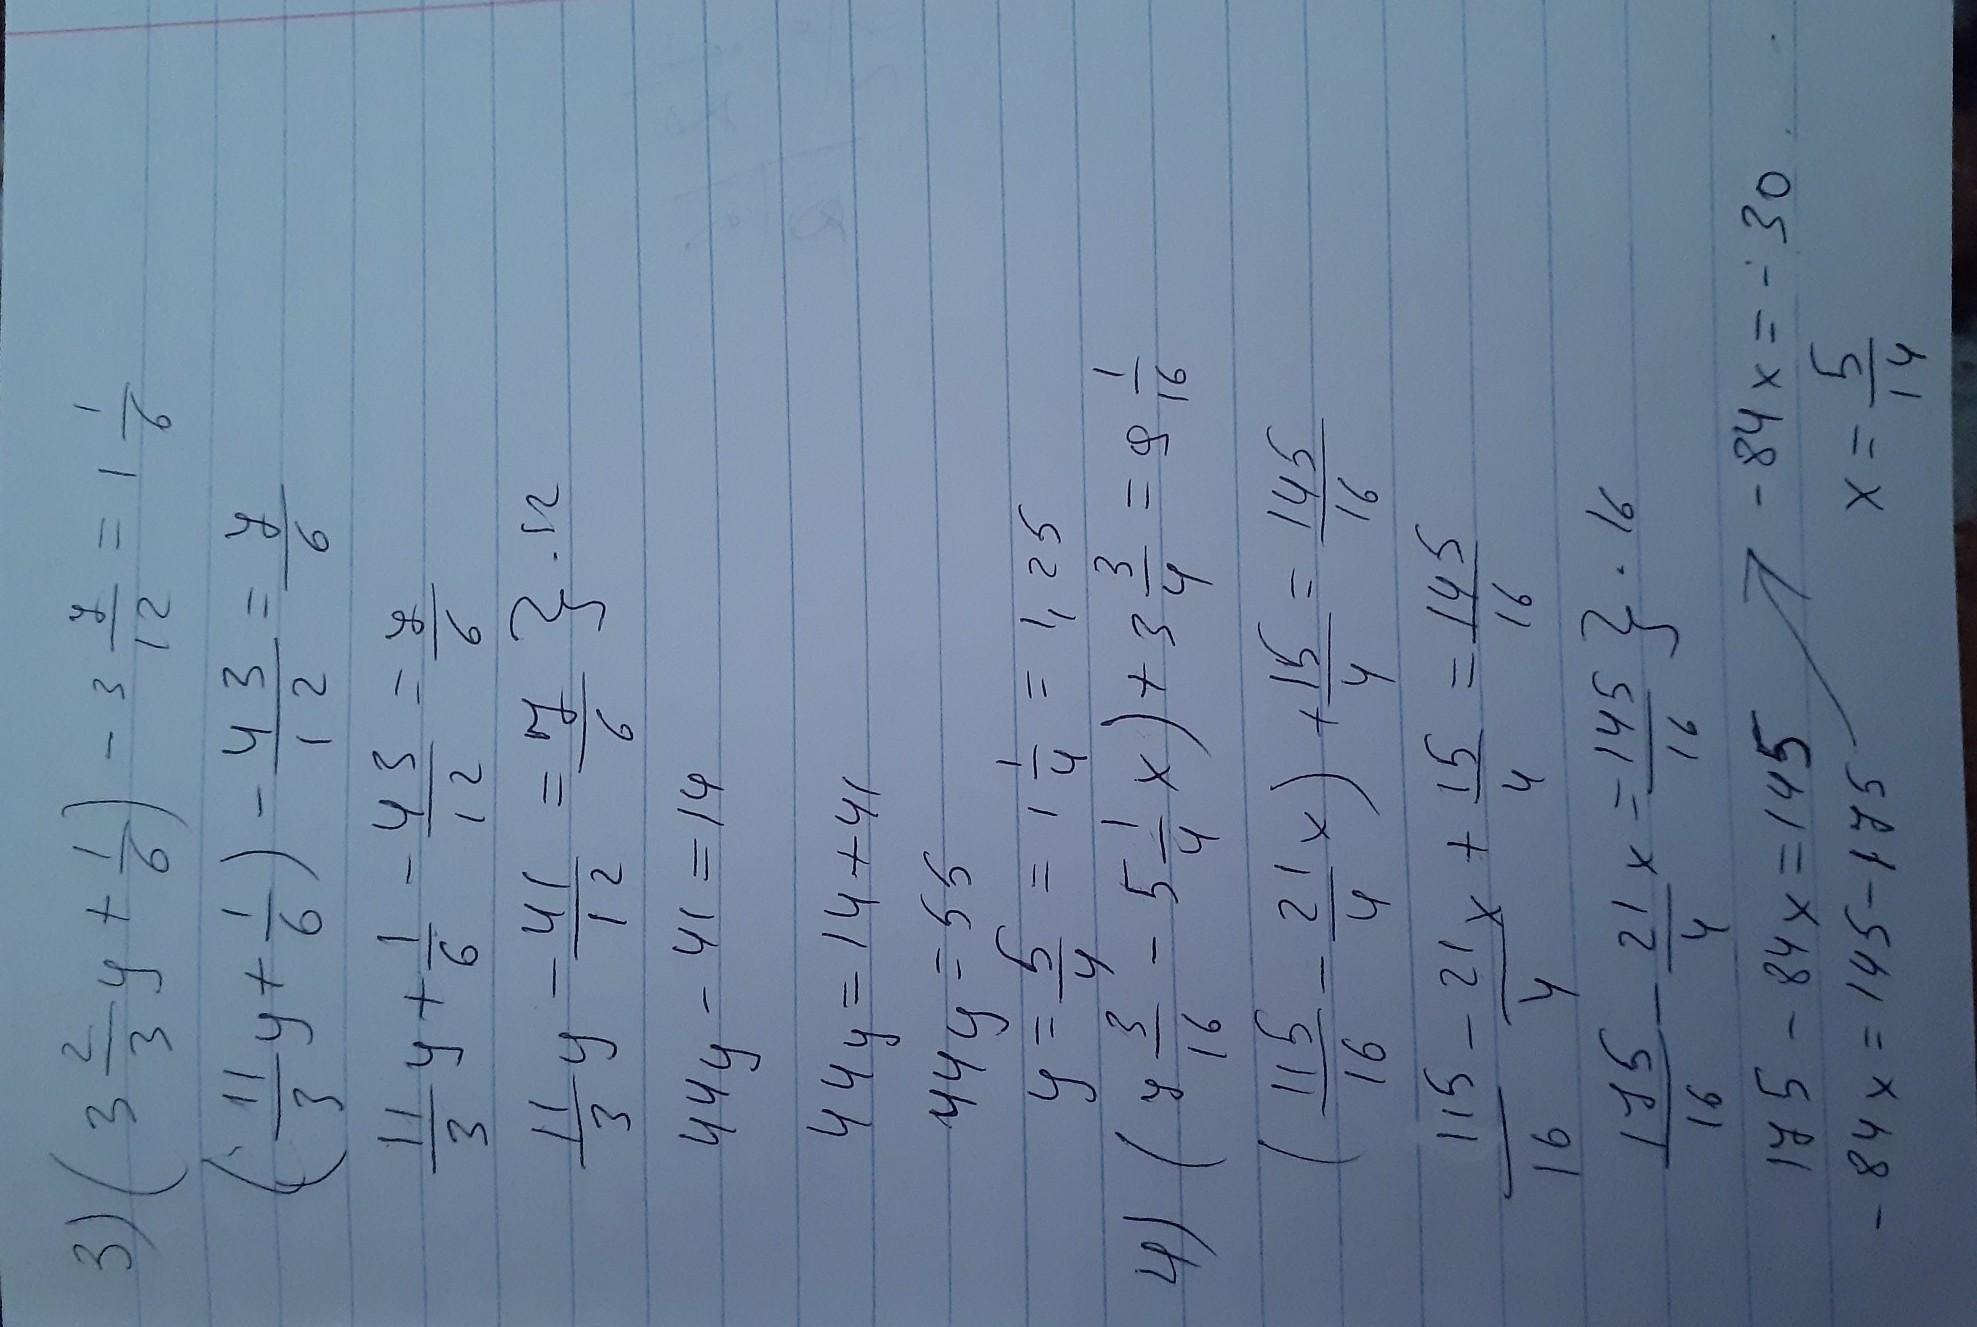 3) (3 2/3 y + 1/6) - 3 7/12 = 1 1/6
(11/3 y + 1/6) - 43/12 = 7/6
11/3 y + 1/6 - 43/12 = 7/6
11/3 y - 41/12 = 7/6 } · 12
44y - 41 = 14
44y = 14 + 41
44y = 55
y = 5/4 = 1 1/4 = 1,25
4) (7 3/16 - 5 1/4 x) + 3 3/4 = 9 1/16
(115/16 - 21/4 x) + 15/4 = 145/16
115/16 - 21x/4 + 15/4 = 145/16
175/16 - 21/4 x = 145/16 } · 16
175 - 84x = 145
-84x = 145 - 175
-84x = -30
x = 5/14